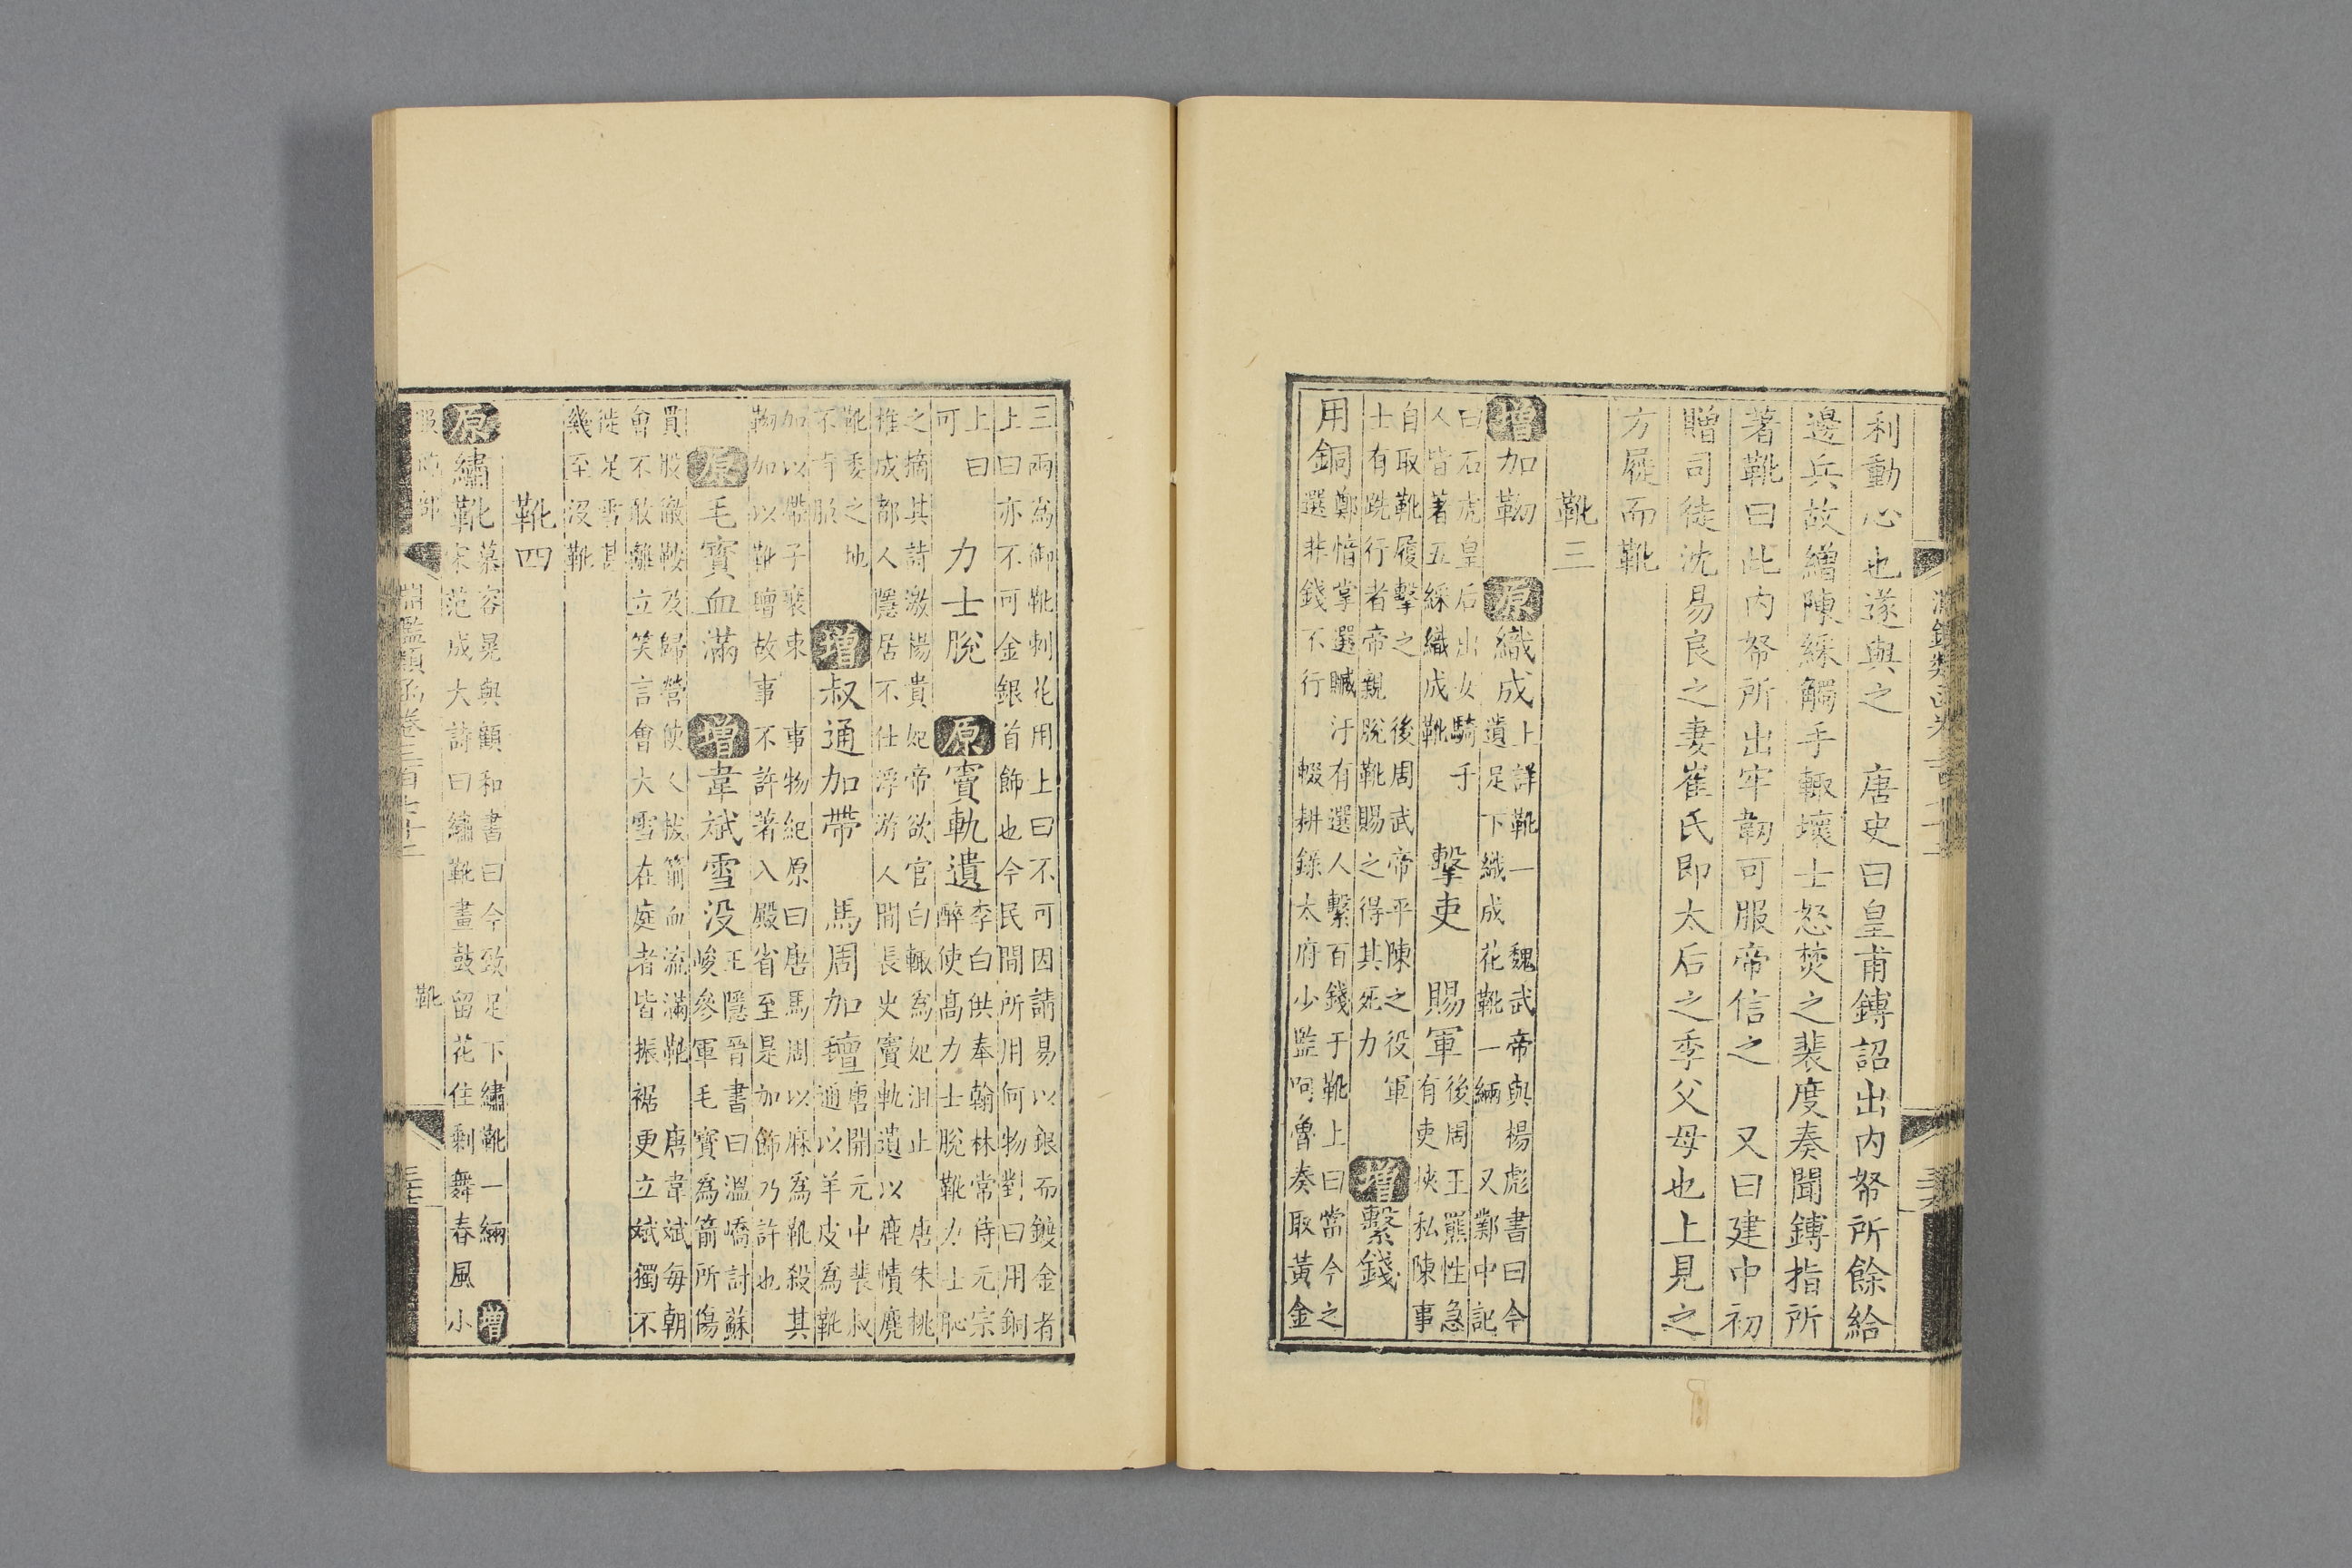 利動心也遂與之　唐史曰皇甫鏄詔出内帑所餘給
邊兵故繒陳綵觸手輙壞士怒焚之裴度奏聞鏄指所
著靴曰此内帑所出牢韌可服帝信之　又曰建中初
贈司徒沈易良之妻崔氏即太后之季父母也上見之
方屣而靴
靴三
增加靿　原織成
上詳靴一　魏武帝與楊彪書曰今
遺足下織成花靴一緉　又鄴中記
曰石虎皇后出女騎手
人皆著五綵織成靴
擊吏
後周王羆性急
有吏挾私陳事
自取靴履擊之
賜軍
後周武帝平陳之役軍
士有跣行者帝親脫靴賜之得其死力
增繫錢
用銅
鄭愔掌選贓汙有選人繫百錢于靴上曰當今之
選非錢不行　輟耕錄太府少監阿魯奏取黃金
三兩為御靴刺花用上曰不可因請易以銀而鍍金者
上曰亦不可金銀首飾也今民間所用何物對曰用銅
上曰
可
力士脫　原竇軌遺
李白供奉翰林常侍元宗
醉使高力士脫靴力士恥
之摘其詩激楊貴妃帝欲官白輙為妃沮止　唐朱桃
椎成都人隱居不仕浮游人間長史竇軌遺以鹿幘麂
靴委之地
不肯服
增叔通加帶　馬周加氊
唐開元中裴叔
通以羊皮為靴
加以帶子裝束　事物紀原曰唐馬周以麻為靴殺其
靿加以靴氊故事不許著入殿省至是加飾乃許也
原毛寳血滿　增韋斌雪没
王隱晉書曰溫嶠討蘇
峻參軍毛寳為箭所傷
貫股徹鞍及歸營使人拔箭血流滿靴　唐韋斌每朝
會不敢離立笑言會大雪在庭者皆振裾更立斌獨不
徙足雪甚
幾至沒靴
靴四
原繡靴
慕容晃與顧和書曰今致足下繡靴一緉　增
宋范成大詩曰繡靴畫鼓留花住剩舞春風小
淵鑑類函卷三百七十二
靴